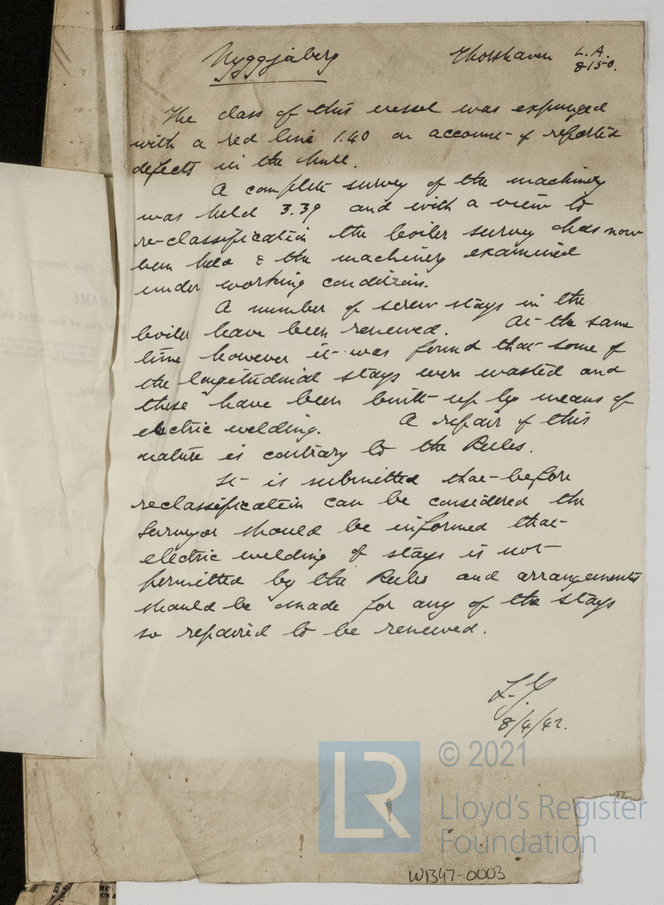 Nyggjaberg Thorshaven L.A.
8150.
The class of this vessel was expunged
with a red line 1.40 on account of reported
defects in the hull.
A complete survey of the machinery
was held 3.39 and with a view to
re-classification the boiler survey has now
been held & the machinery examined
under working conditions.
A number of screw stays in the
boiler have been renewed. At the same
time however it was found that some of
the longitudinal stays were wasted and
these have been built-up by means of
electric welding. A repair of this
nature is contrary to the Rules.
It is submitted that before
reclassification can be considered the
Surveyor should be informed that
electric welding of stays is not
permitted by the Rules and arrangements
should be made for any of the stays
so repaired to be renewed.
8/4/42.
LR
© 2021
Lloyd's Register
Foundation
W1347-0003